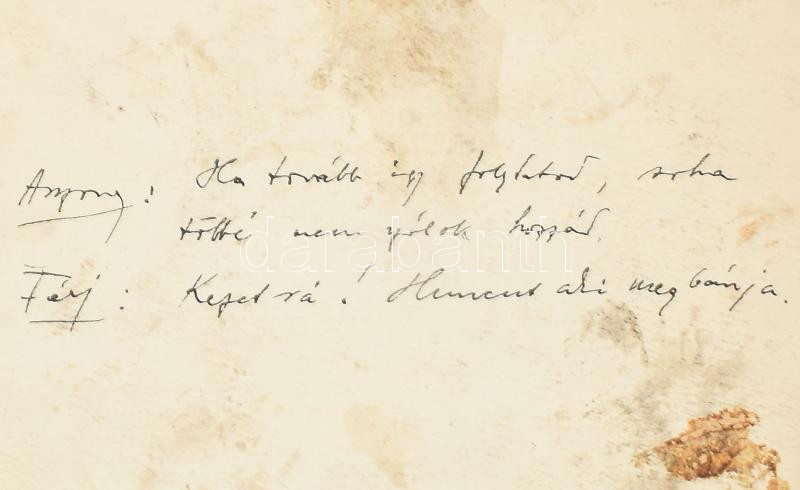 Asszony: Ha tovább így folytatod, soha
többé nem szólok hozzád.
darabanth
Férj: Kezet rá! Huncut aki megbánja.